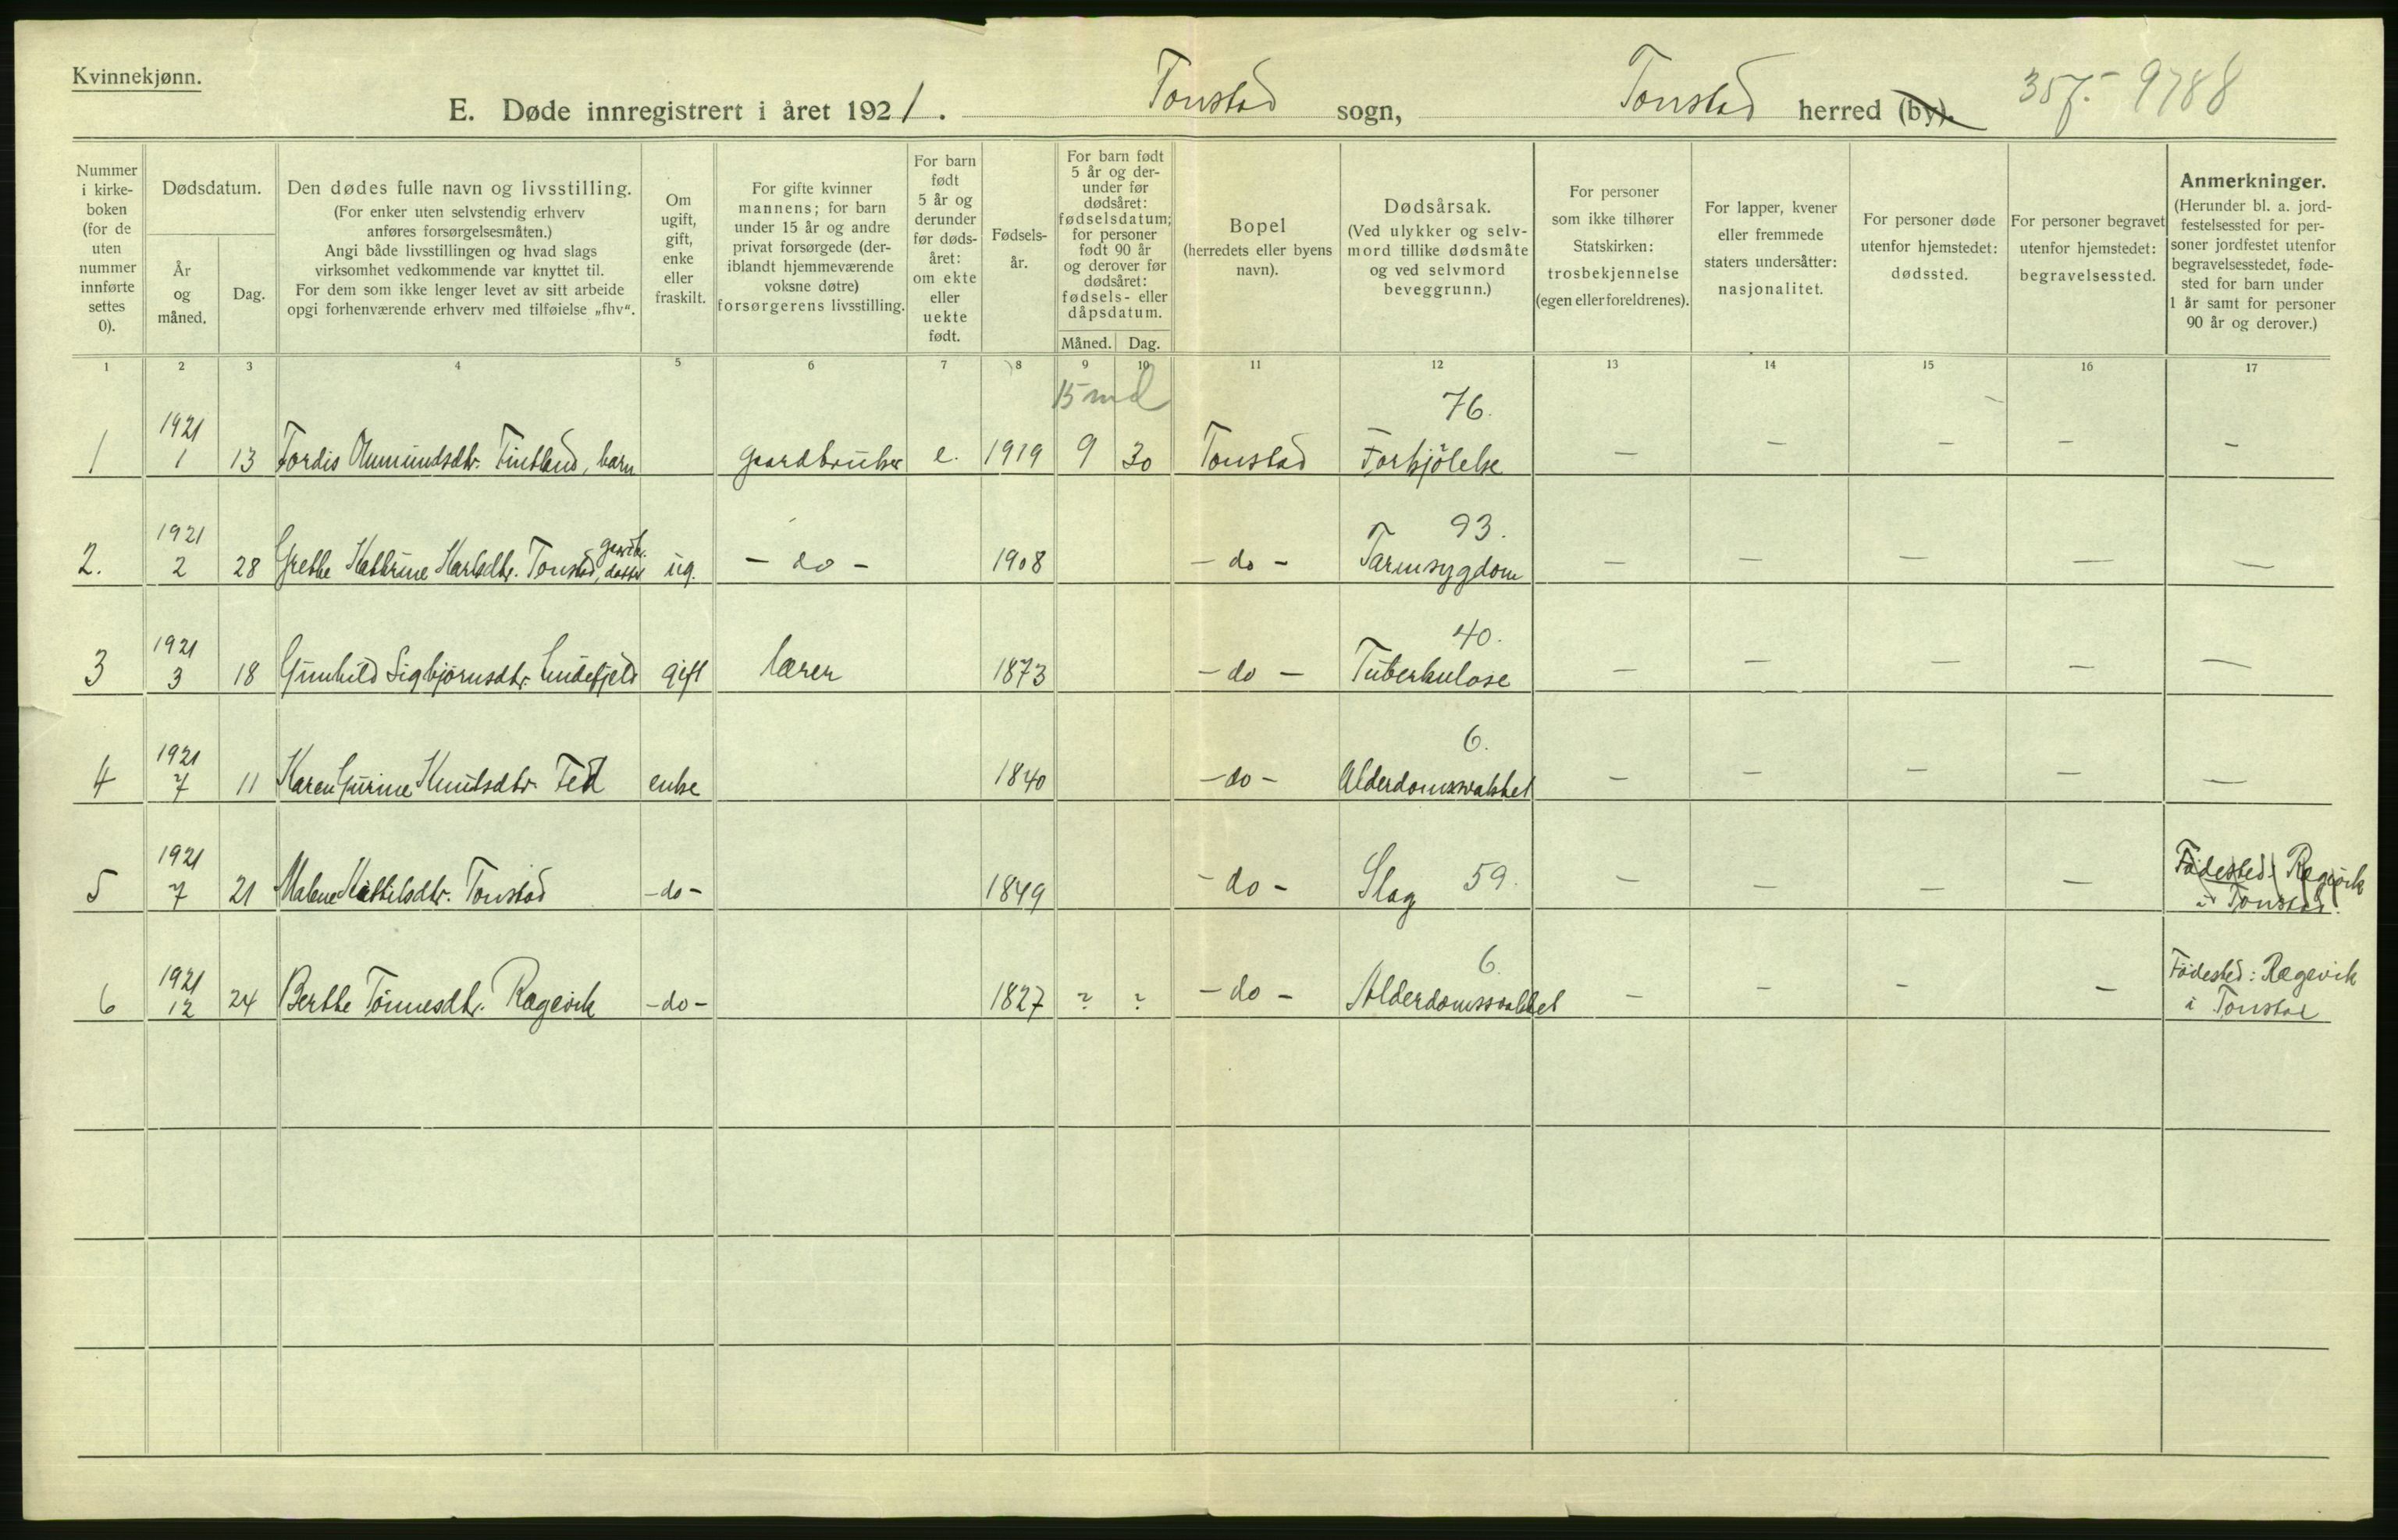 Kvinnekjønn.
E. Døde innregistrert i året 1921. Tonstad sogn, Tonstad herred (by). 357.- 9788
Nummer i kirke-boken (for de uten nummer innførte settes 0).
Dødsdatum.
År og måned.
Dag.
Den dødes fulle navn og livsstilling.
(For enker uten selvstendig erhverv anføres forsørgelsesmåten.)
Angi både livsstillingen og hvad slags virksomhet vedkommende var knyttet til.
For dem som ikke lenger levet av sitt arbeide opgi forhenværende erhverv med tilføielse „fhv“.
Om ugift, gift, enke eller fraskilt.
For gifte kvinner mannens; for barn under 15 år og andre privat forsørgede (deriblandt hjemmeværende voksne døtre) forsørgerens livsstilling.
For barn født 5 år og derunder før dødsåret: om ekte eller uekte født.
Fødselsår.
For barn født 5 år og derunder før dødsåret: fødselsdatum; for personer født 90 år og derover før dødsåret: fødsels- eller dåpsdatum.
Måned. Dag.
Bopel (herredets eller byens navn).
Dødsårsak. (Ved ulykker og selvmord tillike dødsmåte og ved selvmord beveggrunn.)
For personer som ikke tilhører Statskirken: trosbekjennelse (egen eller foreldrenes).
For lapper, kvener eller fremmede staters undersåtter: nasjonalitet.
For personer døde utenfor hjemstedet: dødssted.
For personer begravet utenfor hjemstedet: begravelsessted.
Anmerkninger. (Herunder bl. a. jordfestelsessted for personer jordfestet utenfor begravelsesstedet, fødested for barn under 1 år samt for personer 90 år og derover.)
1 2 3 4 5 6 7 8 9 10 11 12 13 14 15 16 17
15 md 76.
1 1921 1 13 Tordis Ommundsdtr. Fintland, barn gaardbruker e. 1919 9 30 Tonstad Forkjölelse — — — — —
93.
2. 1921 2 28 Grethe Kathrine Karlsdtr. Tonstad, gaardbr. datter ug. - do - 1908 - do - Tarmsygdom — — — — —
40.
3 1921 3 18 Gunhild Sigbjörnsdtr. Lindefjeld gift lærer 1873 - do - Tuberkulose — — — — —
6.
4 1921 7 11 Karen Gurine Knutsdtr. Fed enke 1840 - do - Alderdomssvakhet — — — — —
5 1921 7 21 Malene Kittilsdtr. Tonstad - do - 1849 - do - Slag 59. — — — — Födested: Rægevik i Tonstad.
6.
6 1921 12 24 Berthe Tönnesdtr. Rægevik - do - 1827 ? ? - do - Alderdomssvakhet — — — — Födested: Rægevik i Tonstad